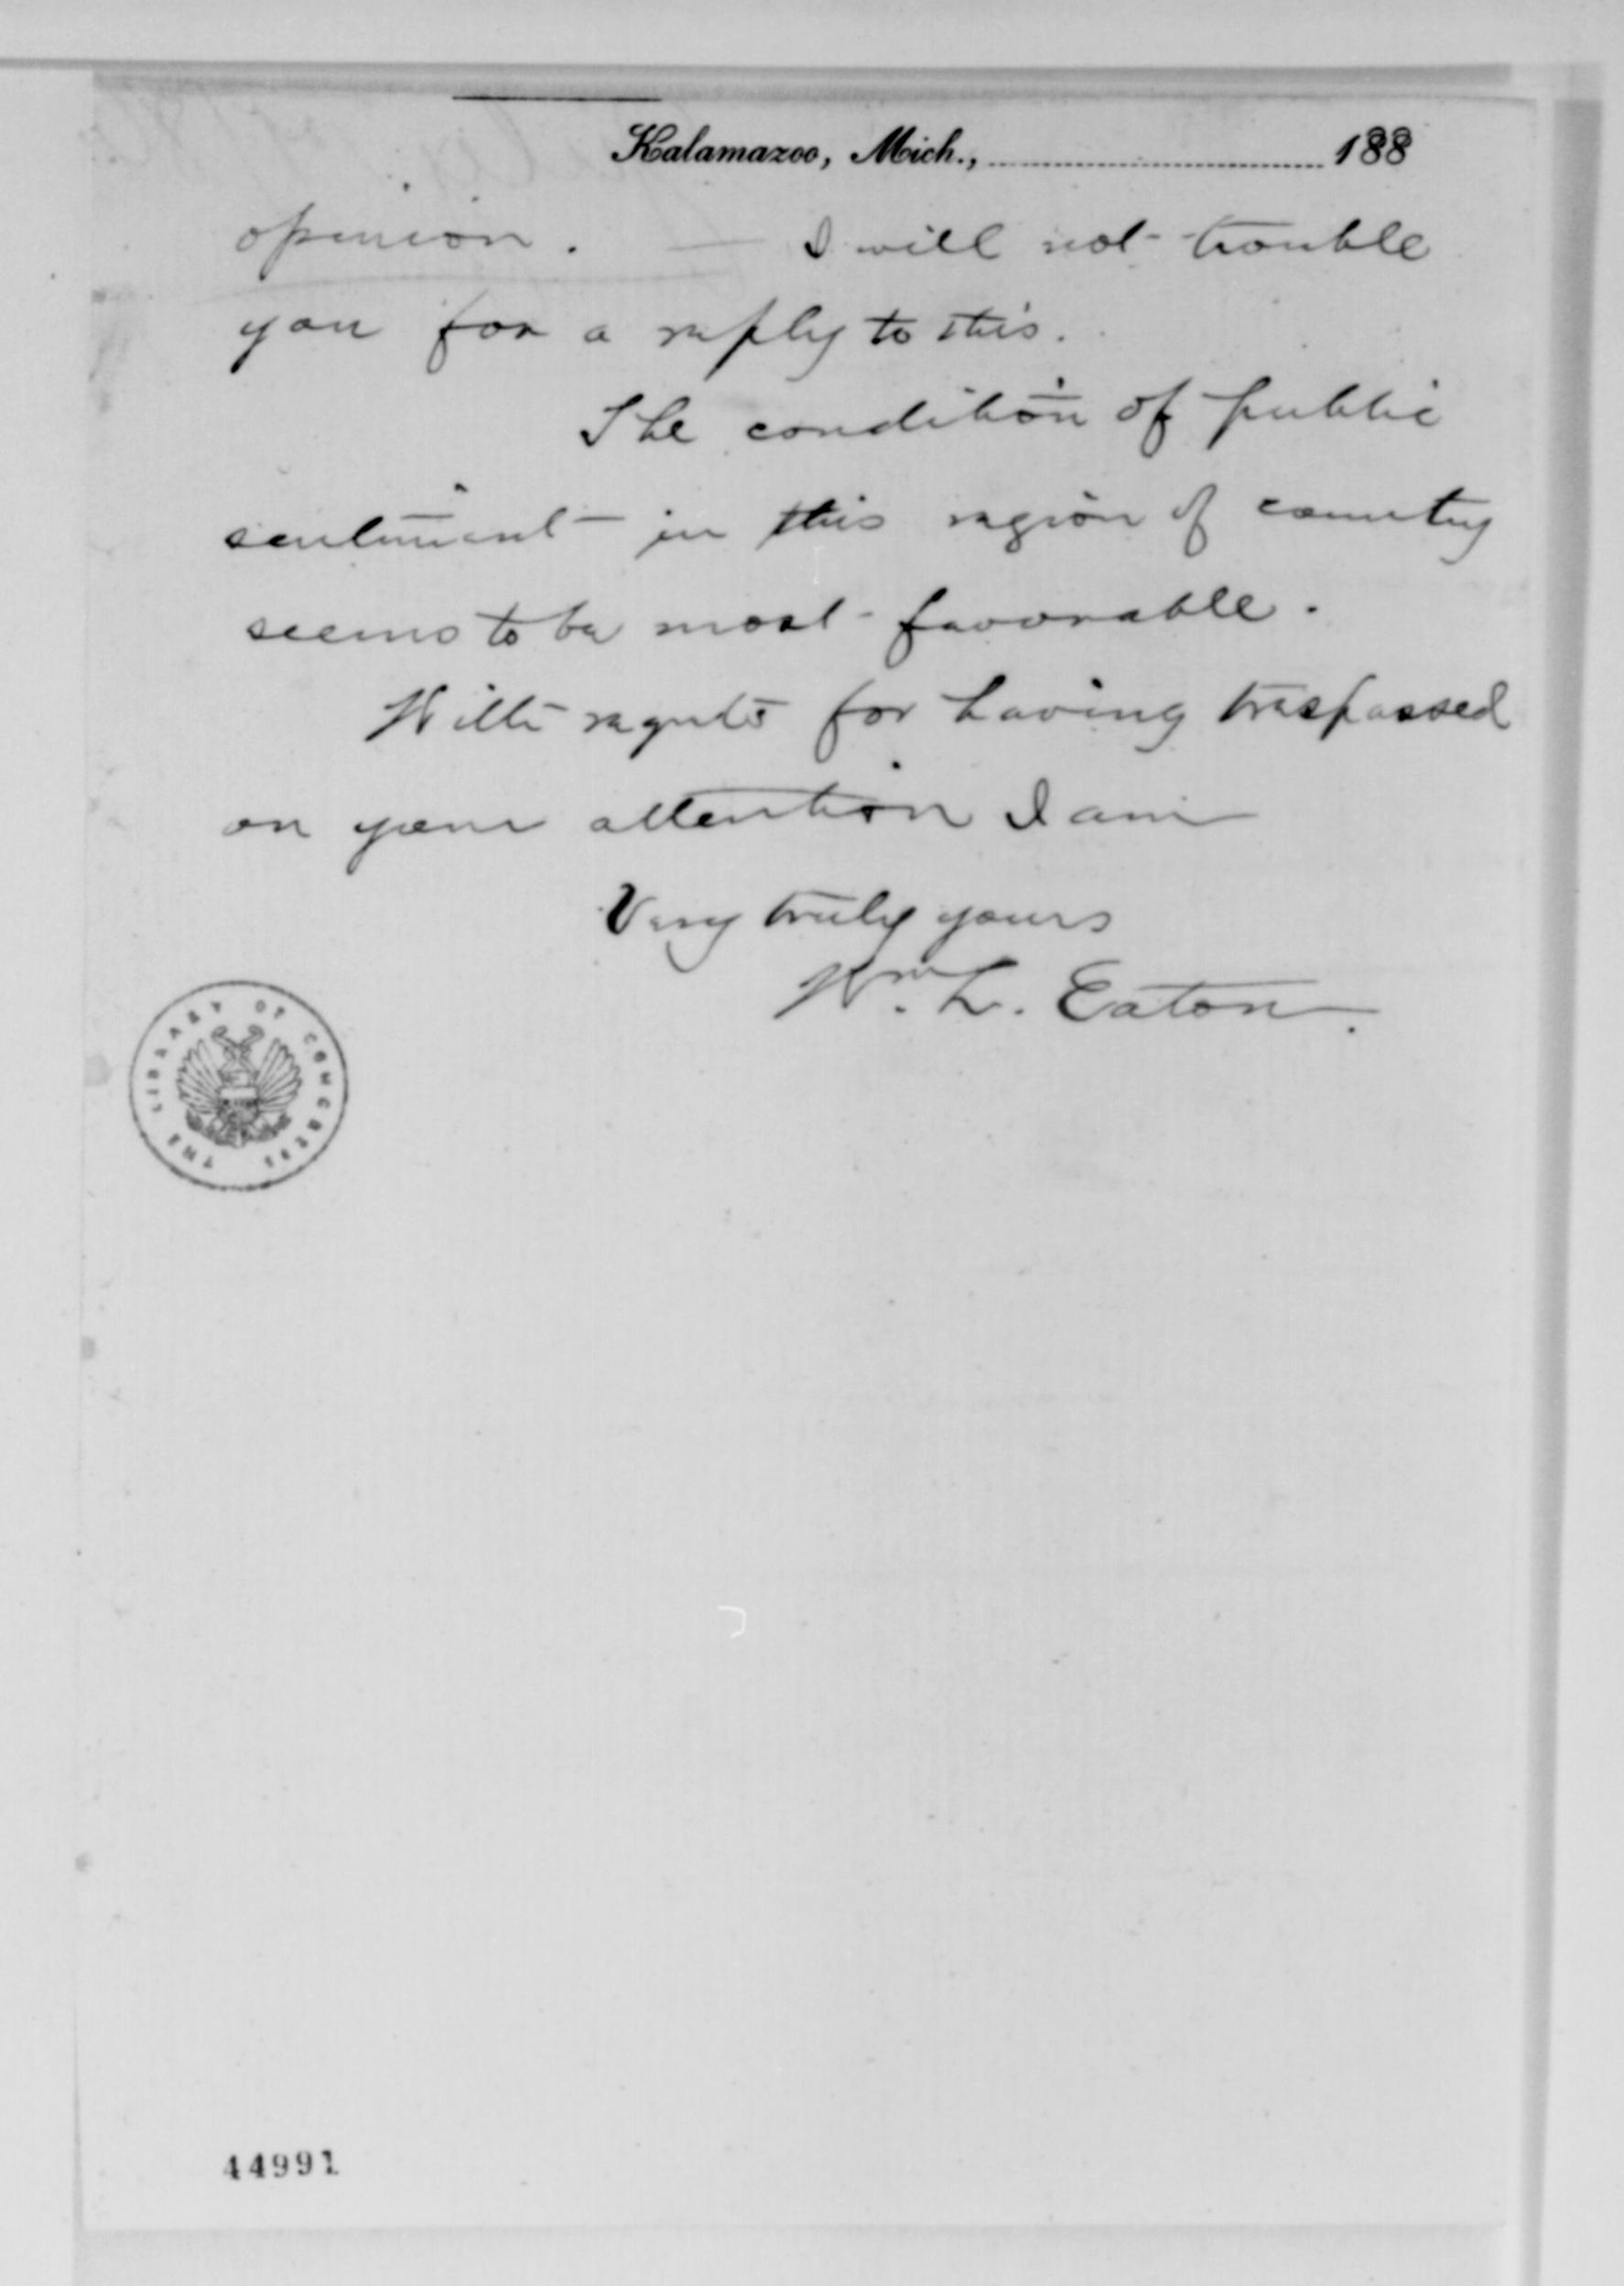 Kalamazoo, Mich., 188
opinion. — I will not trouble
you for a reply to this.
The condition of public
sentiment in this region of country
seems to be most favorable.
With regrets for having trespassed
on your attention I am
Very truly yours
Wm. L. Eaton.
THE LIBRARY OF CONGRESS
44991